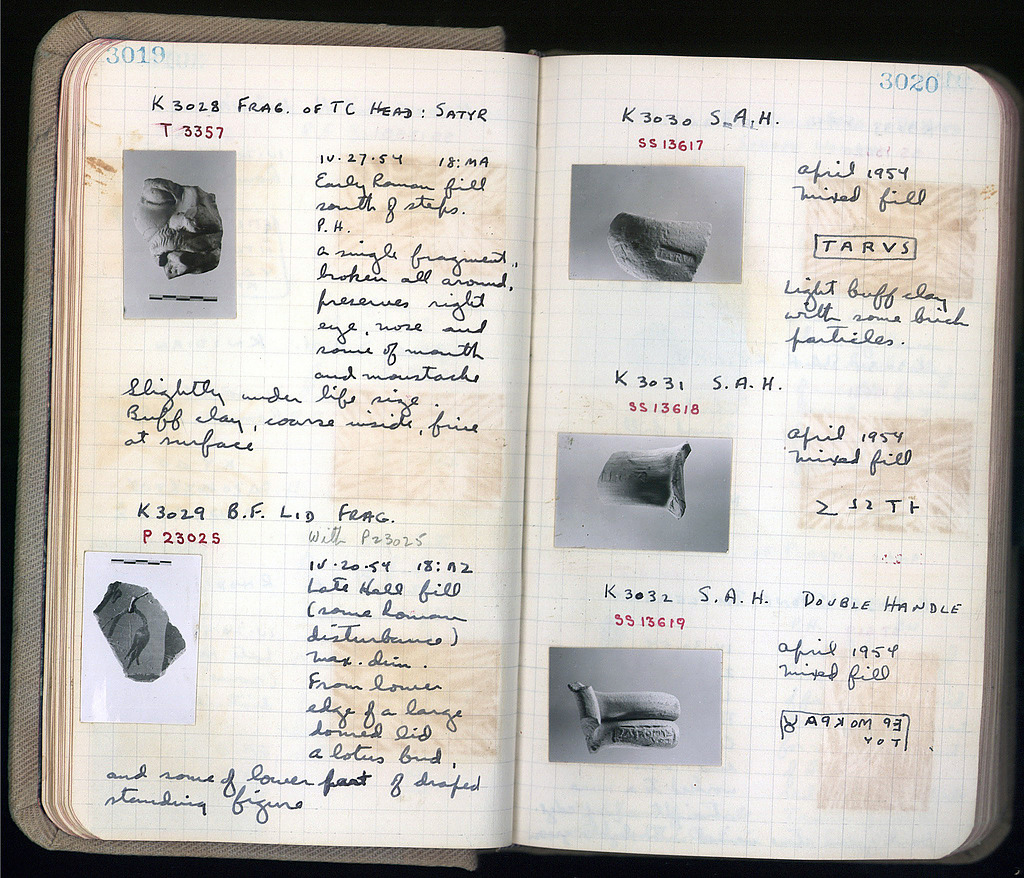 3019
K 3028 FRAG. OF TC HEAD: SATYR
T 3357
IV·27·54 18: MA
Early Roman fill
south of steps.
P.H.
a single fragment,
broken all around,
preserves right
eye, nose and
some of mouth
and moustache
Slightly under life size.
Buff clay, coarse inside, fine
at surface
K 3029 B.F. LID FRAG.
P 23025 With P23025
IV·20·54 18: AZ
Late Hell fill
(some Roman
disturbance)
Max. dim.
From lower
edge of a large
domed lid
a lotus bud,
and some of lower part of draped
standing figure
3020
K 3030 S.A.H.
SS 13617
April 1954
Mixed fill
TARVS
Light buff clay
with some brick
particles.
K 3031 S.A.H.
SS 13618
April 1954
Mixed fill
K 3032 S.A.H. DOUBLE HANDLE
SS 13619
April 1954
Mixed fill